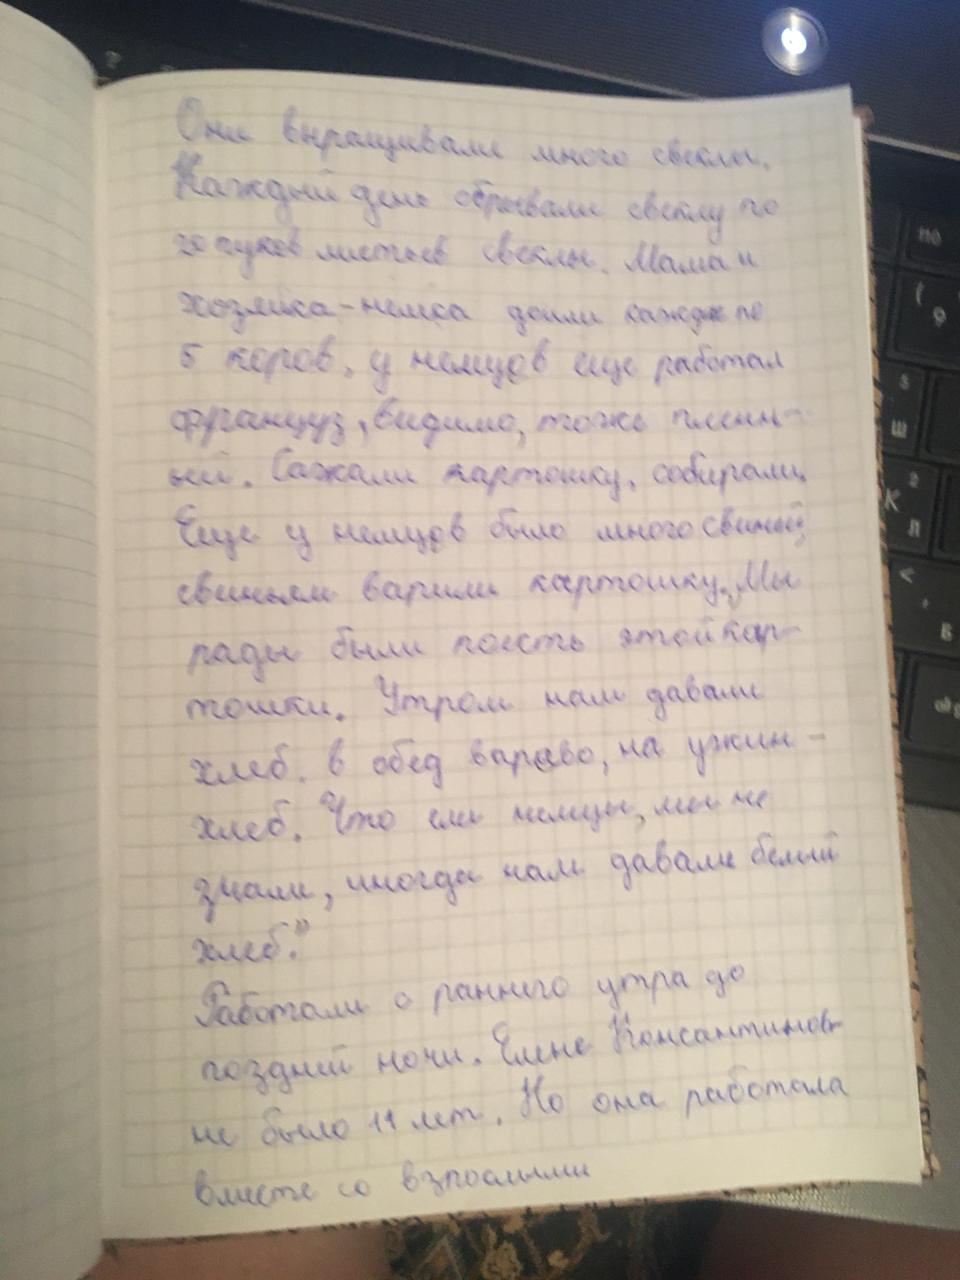 Они выращивали много свеклы.
Каждый день обрывали свеклу по
20 пуков листьев свеклы. Мама и
хозяйка-немка доили каждые по
5 коров. У немцов еще работал
француз, видимо, тоже плени-
ый. Сажали картошку, собирали.
Еще у немцов было много свиней,
свиньям варили картошку. Мы
рады были поесть этой кар-
тошки. Утром нам давали
хлеб. в обед варево, на ужин -
хлеб. Что ели немцы, мы не
знали, иногда нам давали белый
хлеб."
Работали с раннего утра до
поздней ночи. Елене Консантинов-
не было 11 лет. Но она работала
вместе со взрослыми
по
(
9
Ш
2
К
Л
<
,
Б